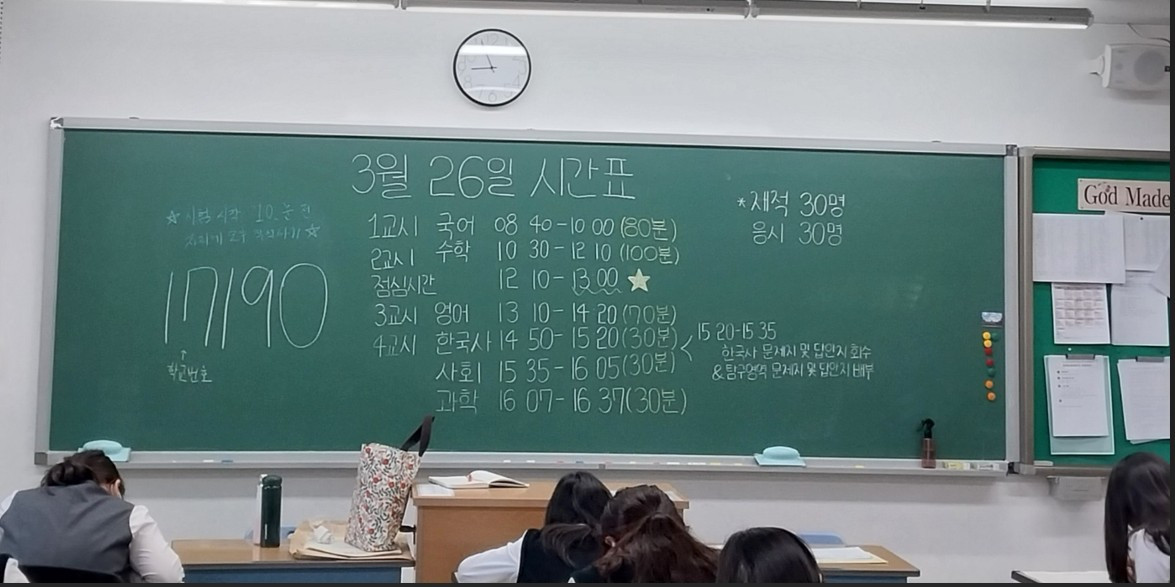 3월 26일 시간표
☆시험 시작 10분 전
17190
↑
학교번호
1교시 국어 08 40-10 00 (80분)
2교시 수학 10 30-12 10 (100분)
점심시간 12 10-13 00 ★
3교시 영어 13 10-14 20 (70분)
4교시 한국사 14 50-15 20 (30분)
사회 15 35-16 05 (30분)
과학 16 07-16 37 (30분)
< 15 20-15 35
한국사 문제지 및 답안지 회수
&탐구영역 문제지 및 답안지 배부
*재적 30명
응시 30명
God Made